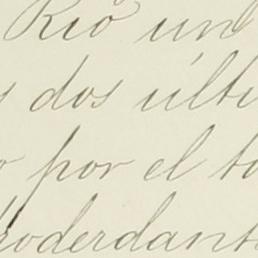 Rio un
s dos últi
o por el to
roderdant